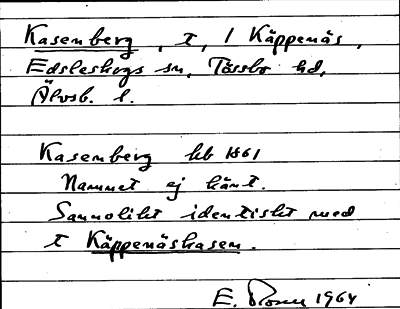 Kasenberg, t, / Käppenäs,
Edsleskogs sn, Tössbo hd,
Älvsb. l.
Kasenberg hb 1861
Namnet ej känt.
Sannolikt identiskt med
t Käppenäskasen.
E. 1964